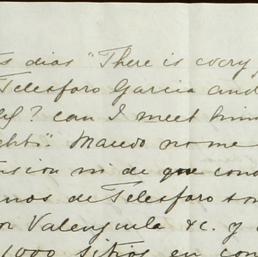 dias "There is every
Telesforo Garcia and
? can I meet him
". Mando no me
sion ni de que con
nos de Telesforo ton
or Valenzuela &c. y
1000 sitios en con